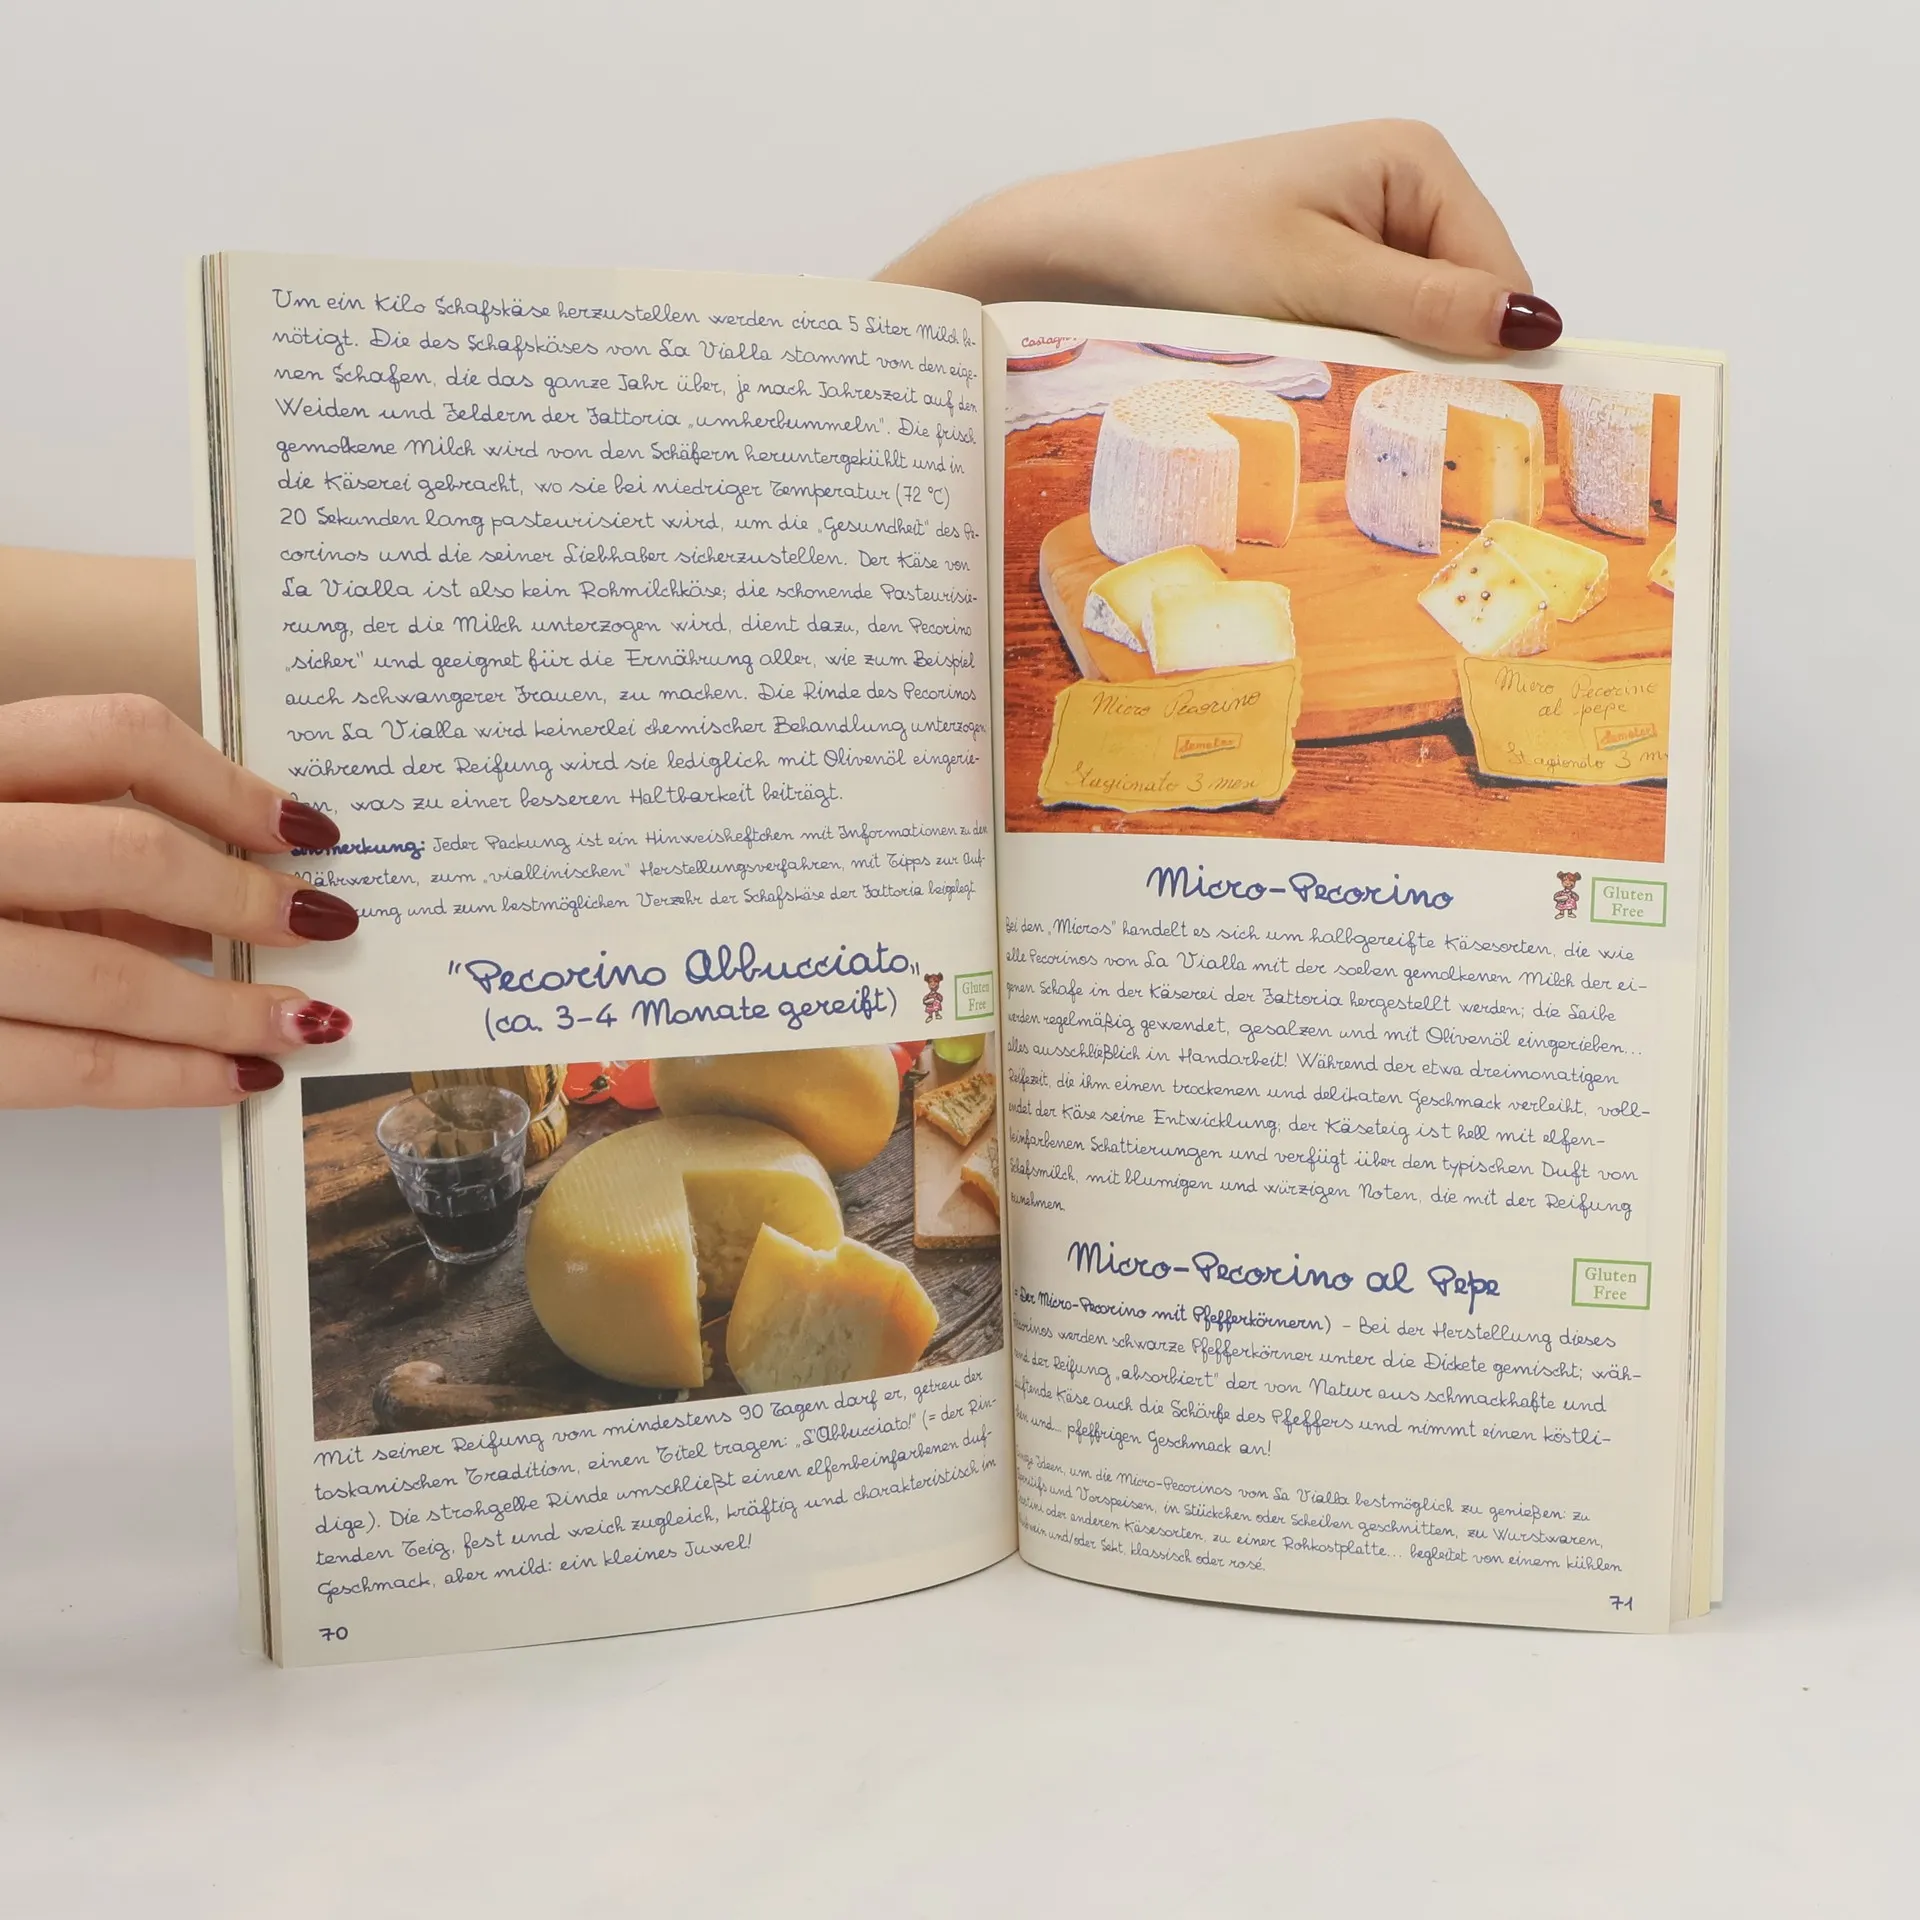 Um ein Kilo Schafskäse herzustellen werden circa 5 Liter Milch be-
nötigt. Die des Schafskäses von La Vialla stammt von den eige-
nen Schafen, die das ganze Jahr über, je nach Jahreszeit auf den
Weiden und Feldern der Fattoria „umherbummeln". Die frisch
gemolkene Milch wird von den Schäfern heruntergekühlt und in
die Käserei gebracht, wo sie bei niedriger Temperatur (72 °C)
20 Sekunden lang pasteurisiert wird, um die „Gesundheit" des Pe-
corinos und die seiner Liebhaber sicherzustellen. Der Käse von
La Vialla ist also kein Rohmilchkäse; die schonende Pasteurisie-
rung, der die Milch unterzogen wird, dient dazu, den Pecorino
„sicher" und geeignet für die Ernährung aller, wie zum Beispiel
auch schwangerer Frauen, zu machen. Die Rinde des Pecorinos
von La Vialla wird keinerlei chemischer Behandlung unterzogen
während der Reifung wird sie lediglich mit Olivenöl eingerie-
ben, was zu einer besseren Haltbarkeit beiträgt.
Anmerkung: Jeder Packung ist ein Hinweisheftchen mit Informationen zu den
Nährwerten, zum „viallinischen" Herstellungsverfahren, mit Tipps zur Auf-
und zum bestmöglichen Verzehr der Schafskäse der Fattoria beigelegt.
"Pecorino Abbucciato"
(ca. 3-4 Monate gereift)
Gluten
Free
Mit seiner Reifung von mindestens 90 Tagen darf er, getreu der
toskanischen Tradition, einen Titel tragen: „L'Abbucciato!" (= der Rin-
dige). Die strohgelbe Rinde umschließt einen elfenbeinfarbenen duf-
tenden Teig, fest und weich zugleich, kräftig und charakteristisch im
Geschmack, aber mild: ein kleines Juwel!
70
Micro Pecorino
demeter
Stagionato 3 mesi
Micro Pecorino
al pepe
demeter
Stagionato 3 m
Micro-Pecorino
Gluten
Free
Bei den „Micros" handelt es sich um halbgereifte Käsesorten, die wie
alle Pecorinos von La Vialla mit der soeben gemolkenen Milch der ei-
genen Schafe in der Käserei der Fattoria hergestellt werden; die Laibe
werden regelmäßig gewendet, gesalzen und mit Olivenöl eingerieben...
alles ausschließlich in Handarbeit! Während der etwa dreimonatigen
Reifezeit, die ihm einen trockenen und delikaten Geschmack verleiht, voll-
endet der Käse seine Entwicklung; der Käseteig ist hell mit elfen-
beinfarbenen Schattierungen und verfügt über den typischen Duft von
Schafsmilch, mit blumigen und würzigen Noten, die mit der Reifung
zunehmen.
Micro-Pecorino al Pepe
Gluten
Free
= Der Micro-Pecorino mit Pfefferkörnern) – Bei der Herstellung dieses
Pecorinos werden schwarze Pfefferkörner unter die Dickete gemischt; wäh-
rend der Reifung „absorbiert" der von Natur aus schmackhafte und
duftende Käse auch die Schärfe des Pfeffers und nimmt einen köstli-
chen und... pfeffrigen Geschmack an!
Ideen, um die Micro-Pecorinos von La Vialla bestmöglich zu genießen: zu
Aperitifs und Vorspeisen, in Stückchen oder Scheiben geschnitten, zu Wurstwaren,
Crostini oder anderen Käsesorten, zu einer Rohkostplatte... begleitet von einem kühlen
und/oder Sekt, klassisch oder rosé.
71